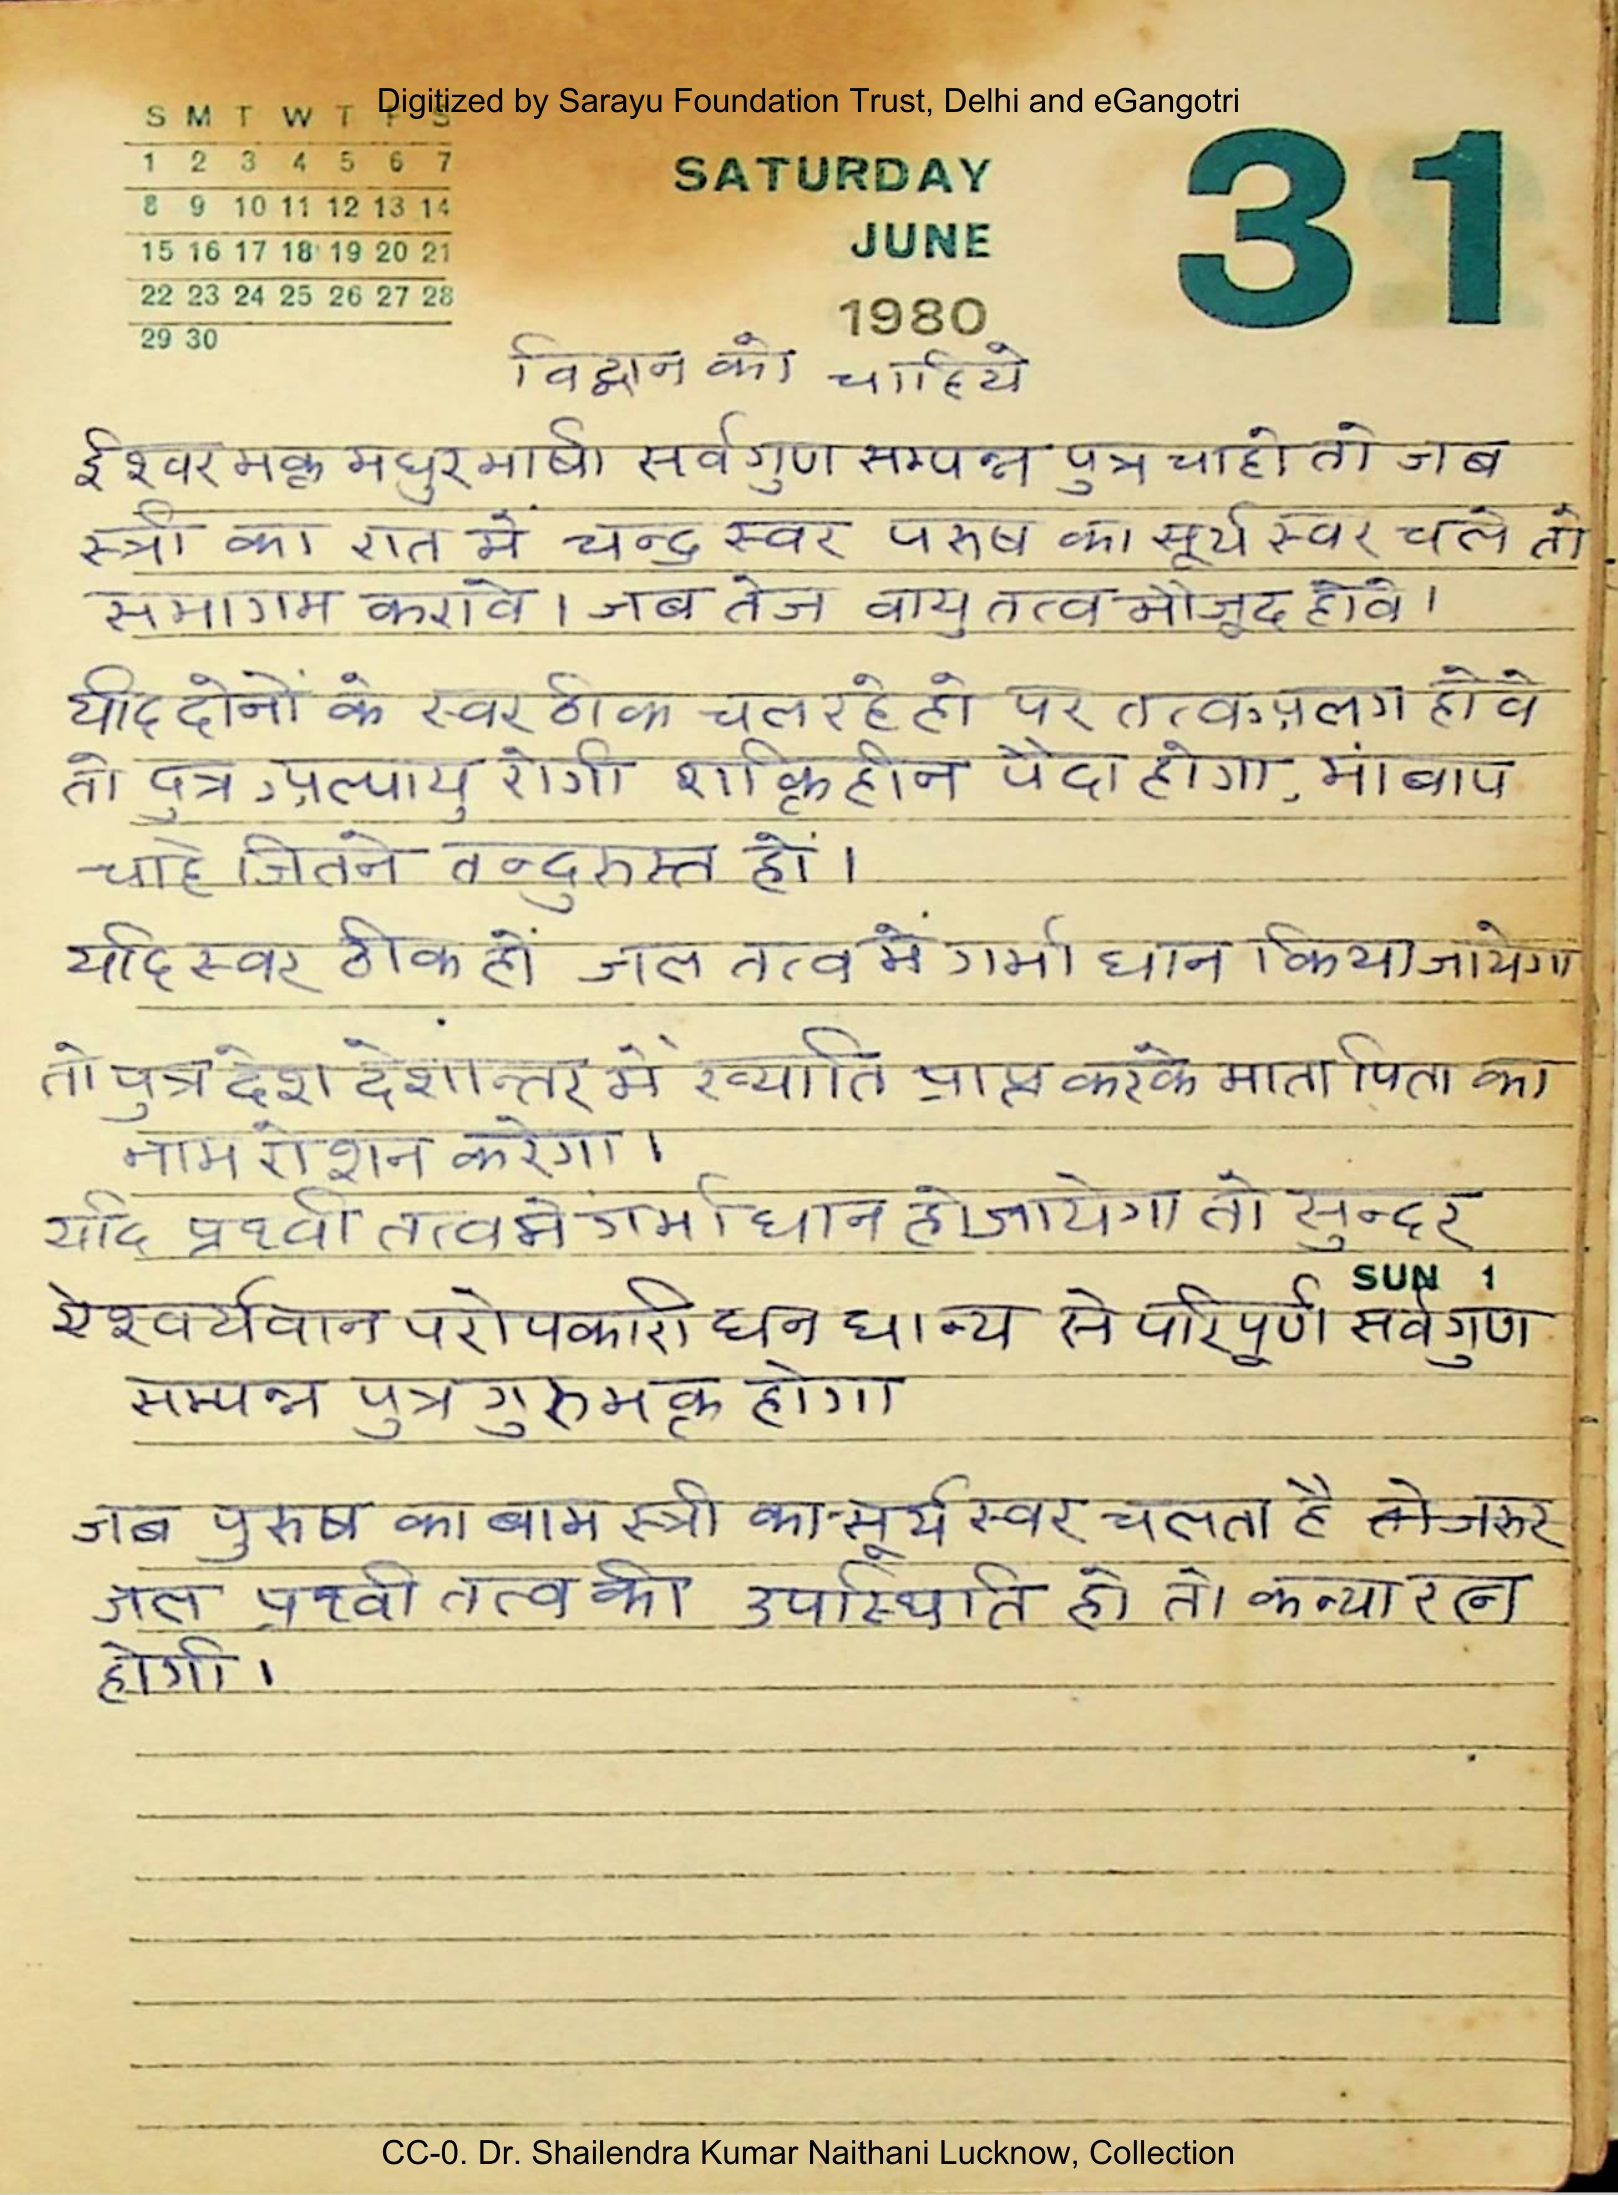 Digitized by Sarayu Foundation Trust, Delhi and eGangotri
S M T W T F S
1 2 3 4 5 6 7
8 9 10 11 12 13 14
15 16 17 18 19 20 21
22 23 24 25 26 27 28
29 30
SATURDAY
JUNE
1980
31
विद्वान को चाहिये
ईश्वर भक्त मधुर भाषी सर्वगुण सम्पन्न पुत्र चाहो तो जब
स्त्री का रात में चन्द्र स्वर परुष का सूर्य स्वर चले तो
समागम करावे । जब तेज वायु तत्व मौजूद होवे ।
यदि दोनों के स्वर ठीक चल रहे हो पर तत्व अलग होवे
तो पुत्र अल्पायु रोगी शक्तिहीन पैदा होगा, मां बाप
चाहे जितने तन्दुरुस्त हों ।
यदि स्वर ठीक हों जल तत्व में गर्भाधान किया जायेगा
तो पुत्र देश देशान्तर में ख्याति प्राप्त करके माता पिता का
नाम रोशन करेगा ।
यदि प्रथ्वी तत्व में गर्भाधान हो जायेगा तो सुन्दर
SUN 1
ऐश्वर्यवान परोपकारी धन धान्य से परिपूर्ण सर्वगुण
सम्पन्न पुत्र गुरु भक्त होगा
जब पुरुष का बाम स्त्री का सूर्य स्वर चलता है तो जरुर
जल प्रथ्वी तत्व की उपस्थिति हो तो कन्या रत्न
होगी ।
CC-0. Dr. Shailendra Kumar Naithani Lucknow, Collection